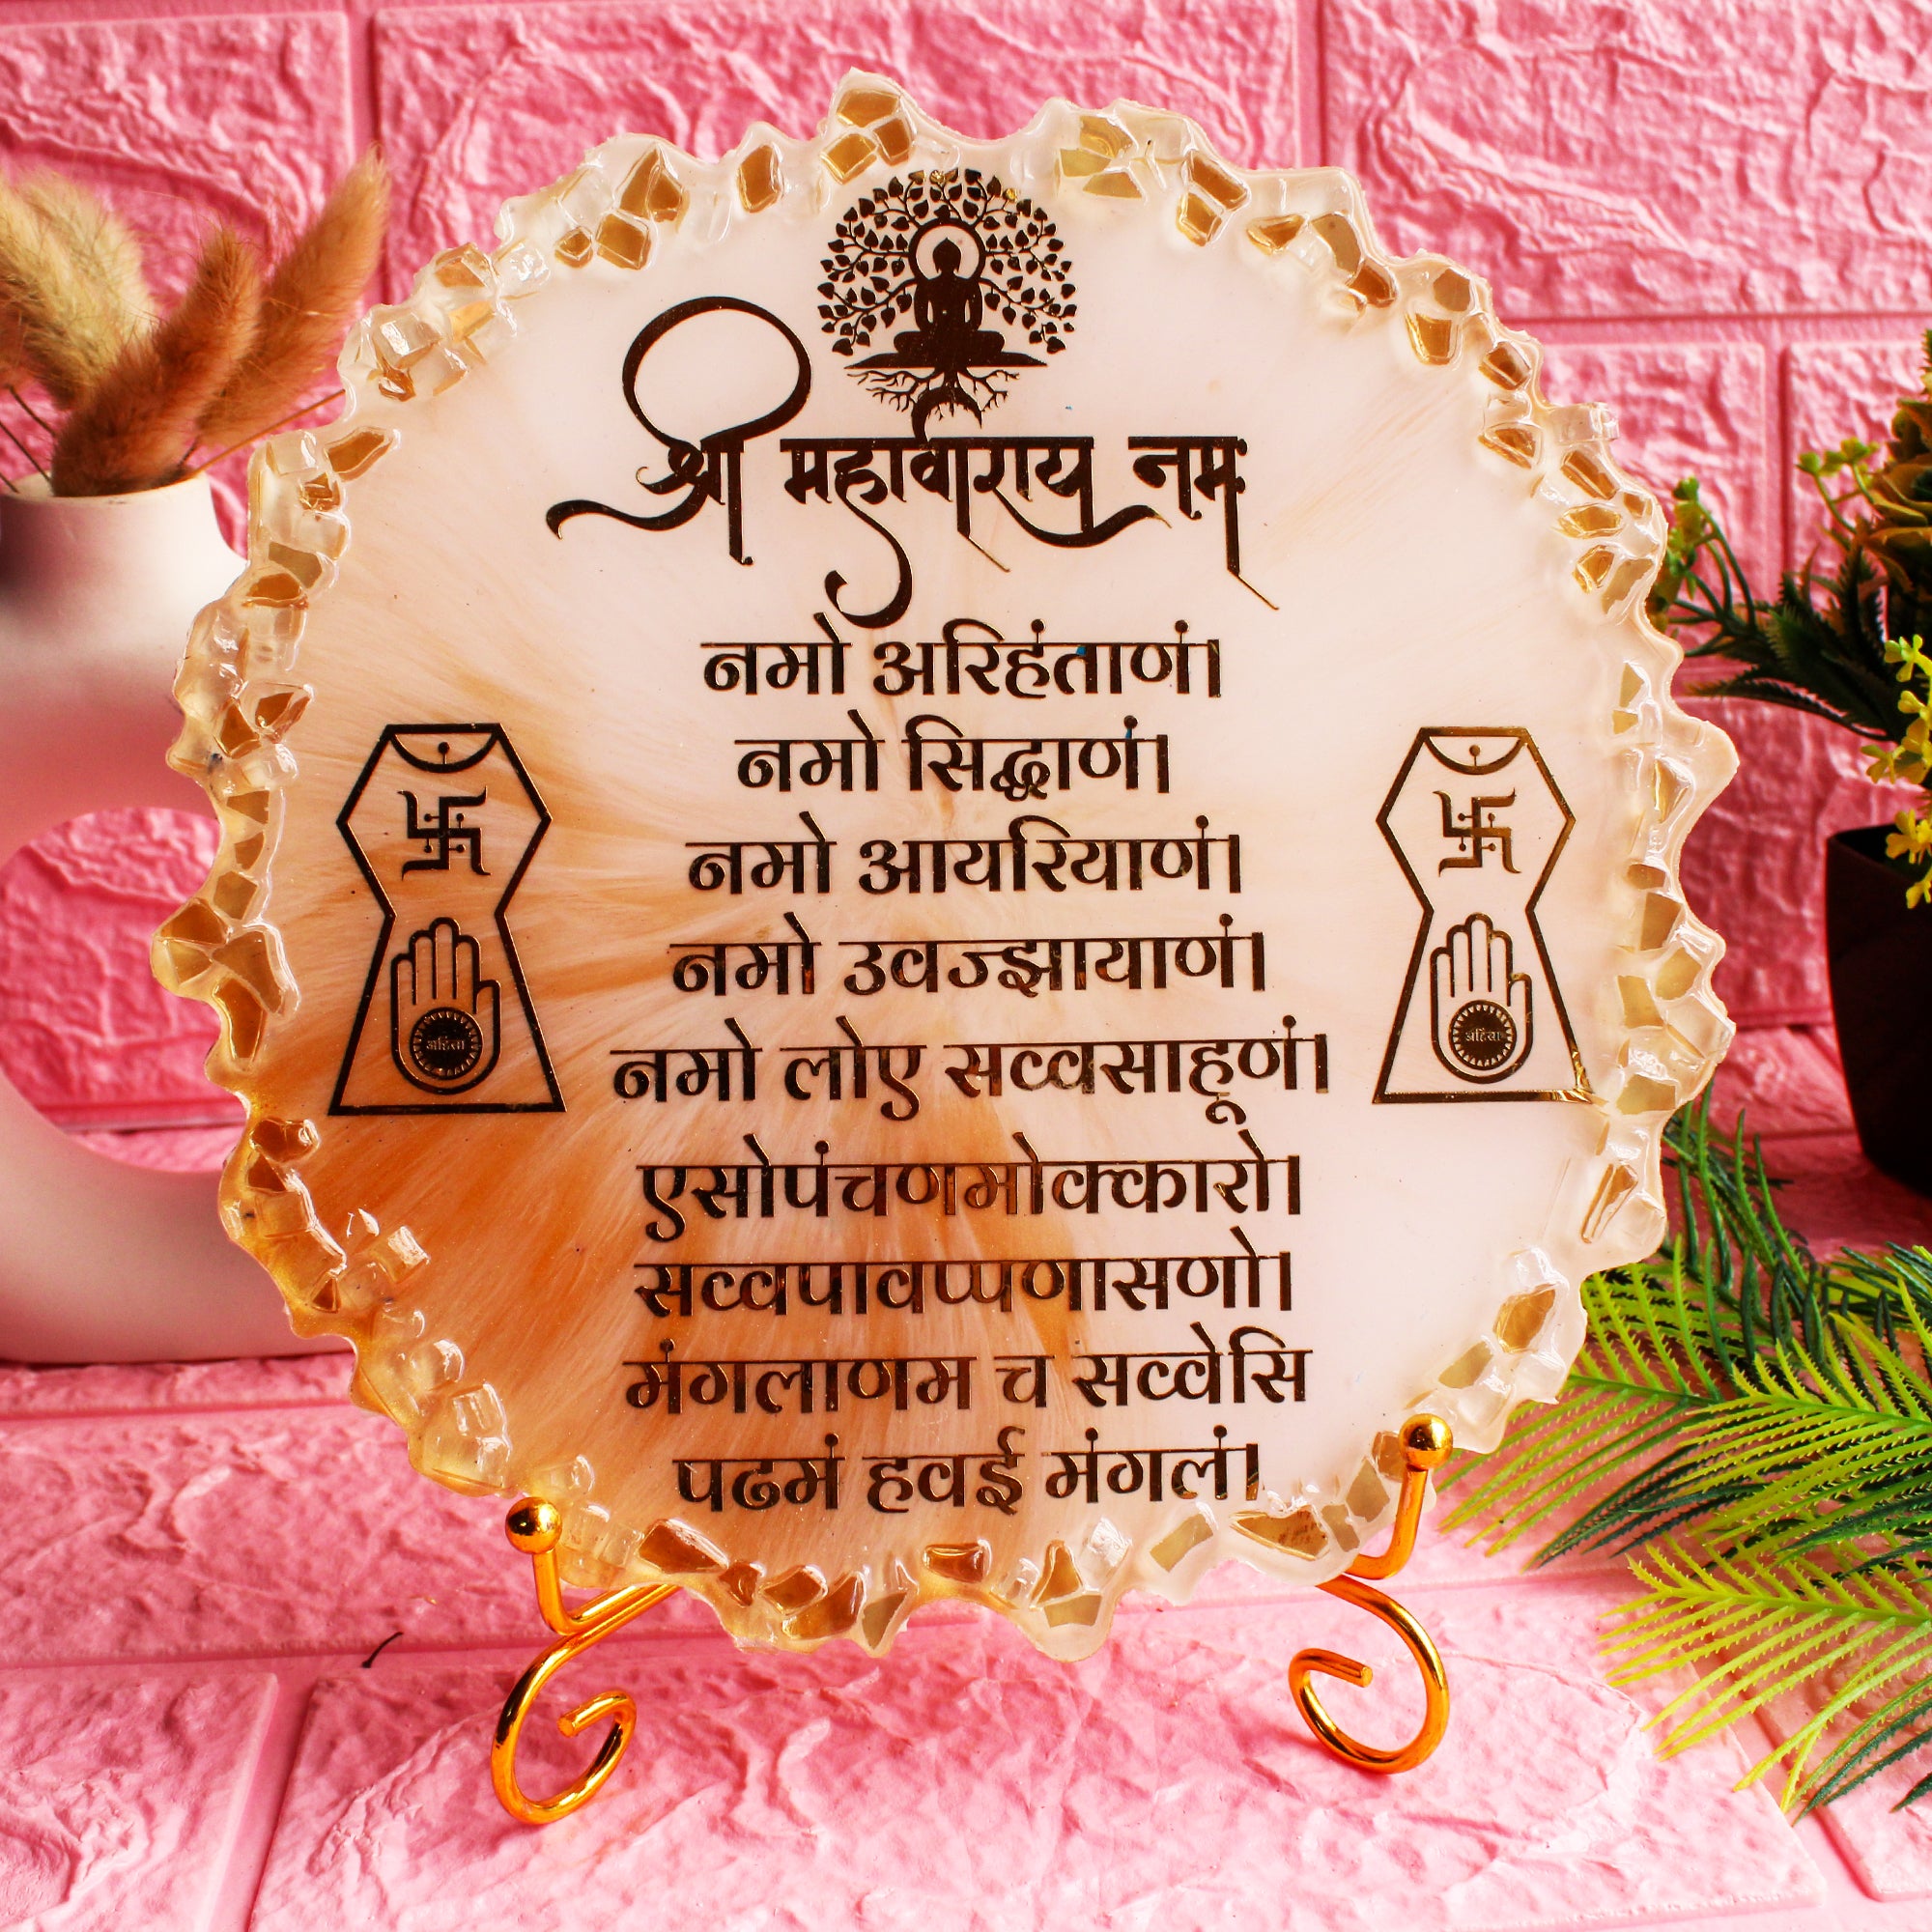 श्री महावीराय नम
नमो अरिहंताणं।
नमो सिद्धाणं।
नमो आयरियाणं।
नमो उवज्झायाणं।
नमो लोए सव्वसाहूणं।
एसोपंचणमोक्कारो।
सव्वपावप्पणासणो।
मंगलाणम च सव्वेसि
पढमं हवई मंगलं।
अहिंसा
अहिंसा